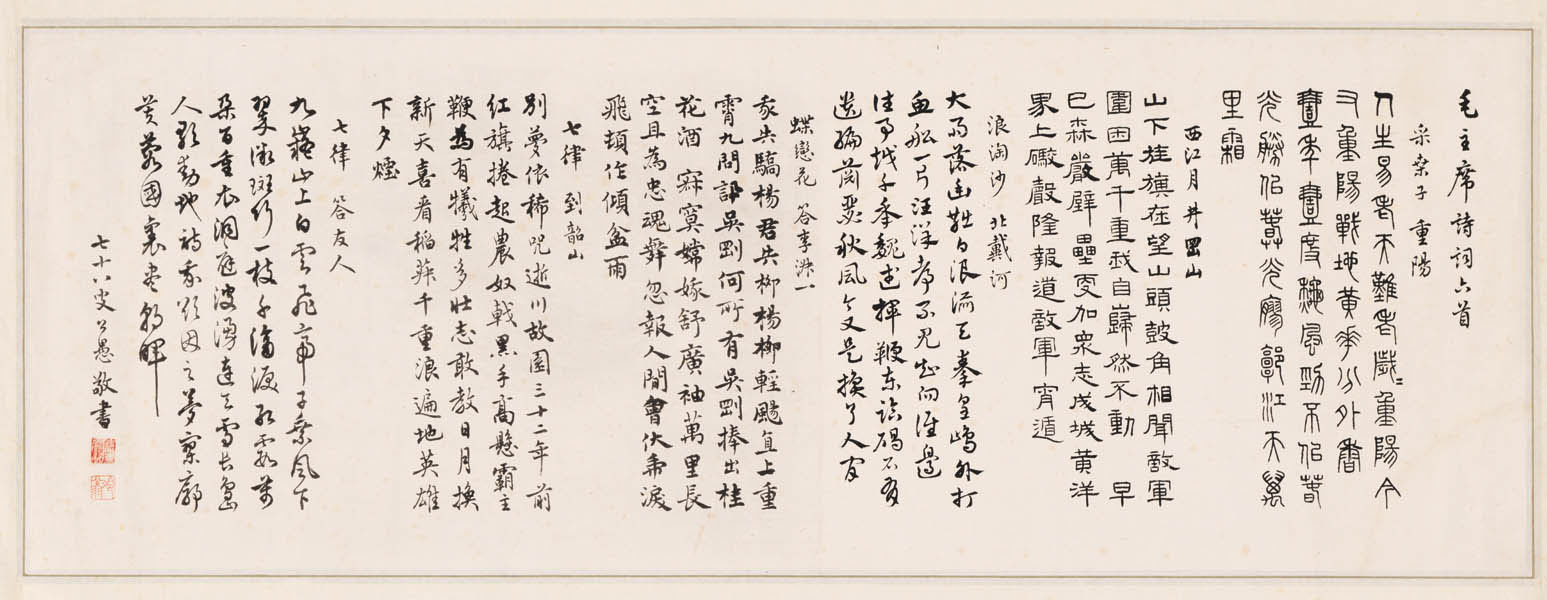 毛主席詩詞六首
采桑子 重陽
人生易老天難老歲〻重陽今
又重陽戰地黃華分外香
壹年壹度秋風勁不佀春
光勝佀春光寥郭江天萬
里霜
西江月 井岡山
山下旌旗在望山頭鼓角相聞敵軍
圍困萬千重我自巋然不動 早
已森嚴壁壘更加眾志成城黃洋
界上礮聲隆報道敵軍宵遁
浪淘沙 北戴河
大雨落幽燕白浪滔天秦皇島外打
魚船一片汪洋都不見知向誰邊
往事越千年魏武揮鞭東臨碣石有
遺篇蕭瑟秋風今又是換了人間
蝶戀花 答李淑一
我失驕楊君失柳楊柳輕颺直上重
霄九問訊吳剛何所有吳剛捧出桂
花酒 寂寞嫦娥舒廣袖萬里長
空且為忠魂舞忽報人間曾伏虎淚
飛頓作傾盆雨
七律 到韶山
別夢依稀咒逝川故園三十二年前
紅旗捲起農奴戟黑手高懸霸主
鞭為有犧牲多壯志敢教日月換
新天喜看稻菽千重浪遍地英雄
下夕煙
七律 答友人
九嶷山上白雲飛帝子乘風下
翠微斑竹一枝千滴淚紅霞萬
朵百重衣洞庭波湧連天雪長島
人歌動地詩我欲因之夢寥廓
芙蓉國裏盡朝暉
七十八叟公愚敬書